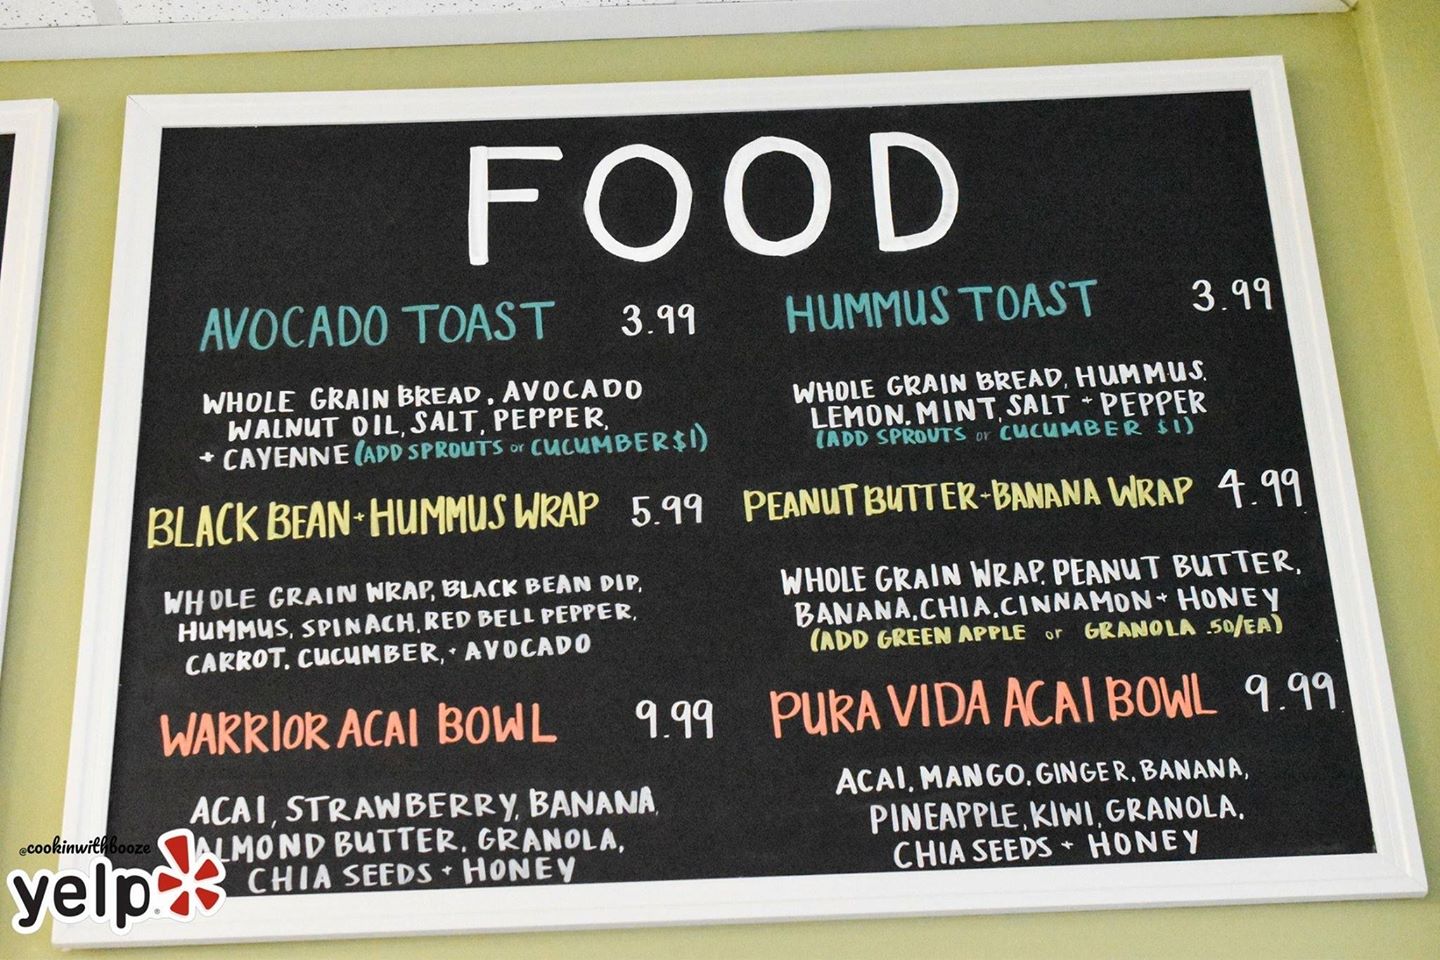 FOOD
AVOCADO TOAST 3.99
WHOLE GRAIN BREAD, AVOCADO
WALNUT OIL, SALT, PEPPER,
+ CAYENNE (ADD SPROUTS or CUCUMBER $1)
HUMMUS TOAST 3.99
WHOLE GRAIN BREAD, HUMMUS,
LEMON, MINT, SALT + PEPPER
(ADD SPROUTS or CUCUMBER $1)
BLACK BEAN + HUMMUS WRAP 5.99
WHOLE GRAIN WRAP, BLACK BEAN DIP,
HUMMUS, SPINACH, RED BELL PEPPER,
CARROT, CUCUMBER, + AVOCADO
PEANUT BUTTER + BANANA WRAP 4.99
WHOLE GRAIN WRAP, PEANUT BUTTER,
BANANA, CHIA, CINNAMON + HONEY
(ADD GREEN APPLE or GRANOLA .50/EA)
WARRIOR ACAI BOWL 9.99
ACAI, STRAWBERRY, BANANA,
ALMOND BUTTER, GRANOLA,
CHIA SEEDS + HONEY
PURA VIDA ACAI BOWL 9.99
ACAI, MANGO, GINGER, BANANA,
PINEAPPLE, KIWI, GRANOLA,
CHIA SEEDS + HONEY
@cookinwithbooze
yelp